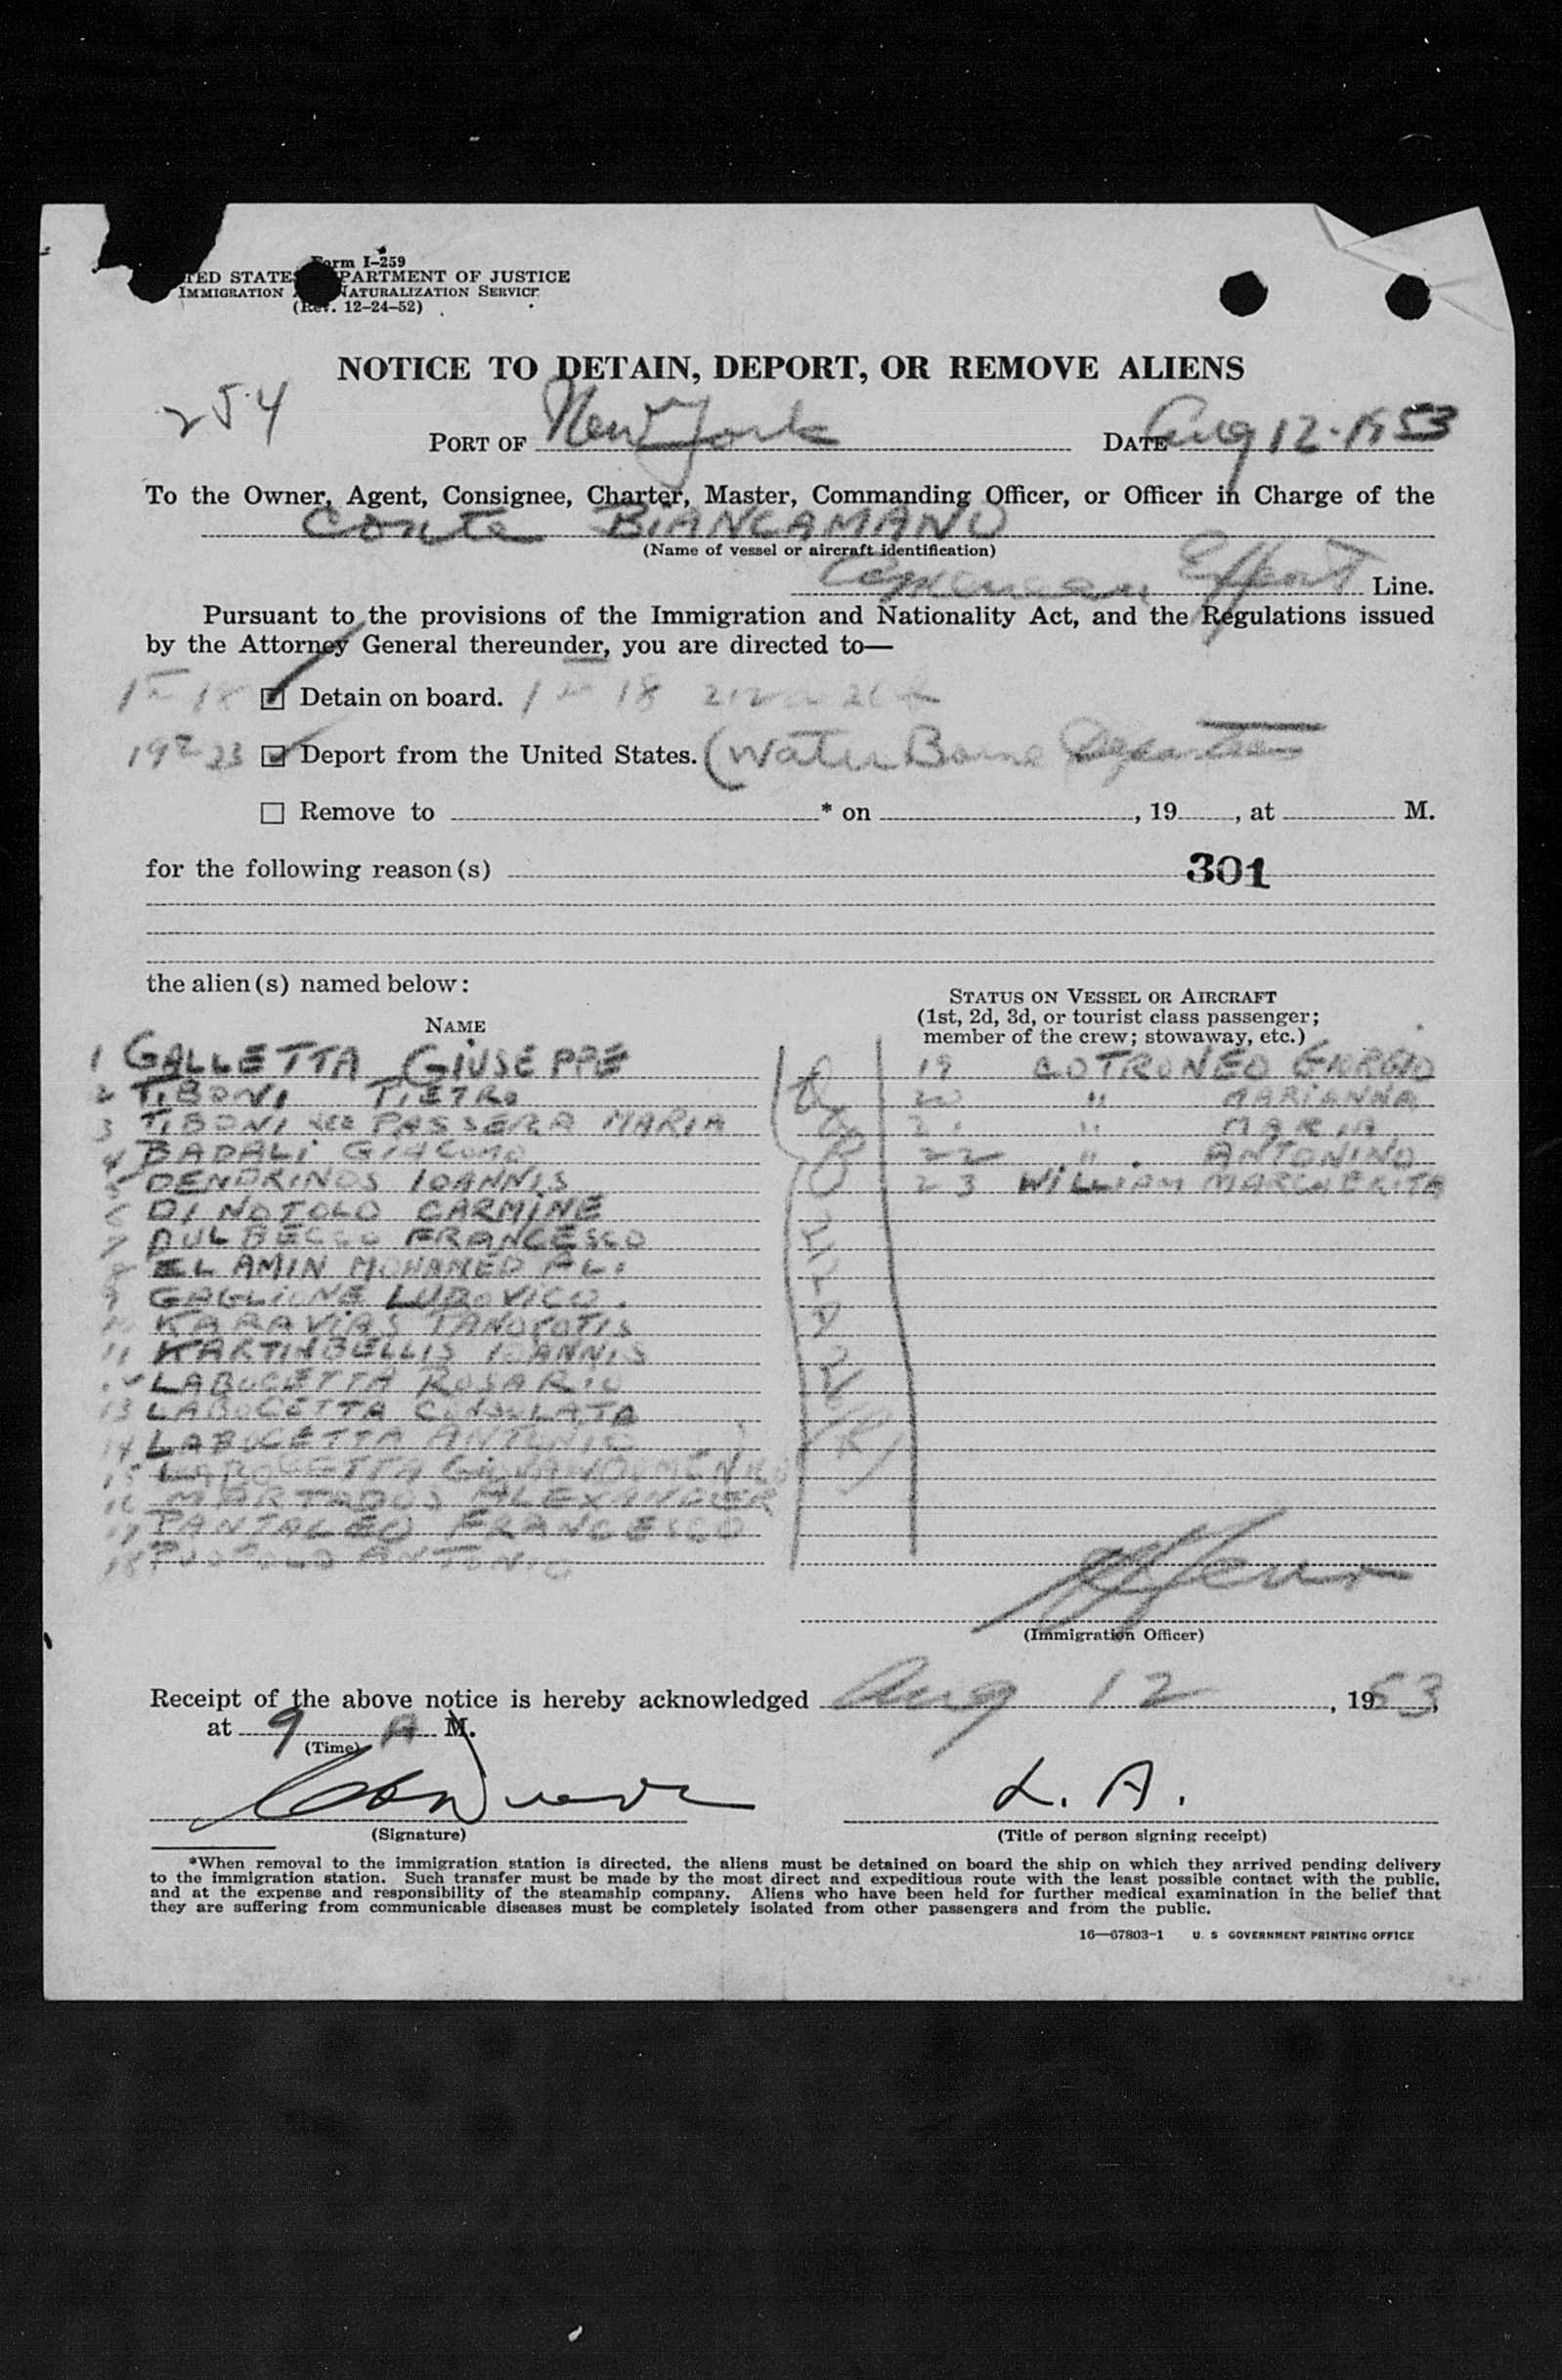 Form I-259
TED STATES DEPARTMENT OF JUSTICE
IMMIGRATION NATURALIZATION SERVICE
(Rev. 12-24-52)
NOTICE TO DETAIN, DEPORT, OR REMOVE ALIENS
254
PORT OF New York DATE Aug 12-1953
To the Owner, Agent, Consignee, Charter, Master, Commanding Officer, or Officer in Charge of the
Conte BIANCAMANO
(Name of vessel or aircraft identification)
American Export Line.
Pursuant to the provisions of the Immigration and Nationality Act, and the Regulations issued
by the Attorney General thereunder, you are directed to—
Detain on board. 18
Deport from the United States. (Water Borne
☐ Remove to * on , 19 , at M.
for the following reason(s) 301
the alien(s) named below:
STATUS ON VESSEL OR AIRCRAFT
(1st, 2d, 3d, or tourist class passenger;
member of the crew; stowaway, etc.)
NAME
1 GALLETTA GIUSEPPE
2 TIBONI PIETRO
3 TIBONI nee PASSERA MARIA
4 BADALI GIACOMO
5 DENDRINOS IOANNIS
6 DI NOTOLO CARMINE
7 DULBECCO FRANCESCO
8 EL AMIN MOHAMED ALI
9 GAGLIONE LUDOVICO
KARAVIAS
11 IOANNIS
LABOCETTA ROSARIO
13 LABOCETTA CONSOLATA
14 LABOCETTA ANTONIO
15 LABOCETTA
16 ALEXANDER
17 PANTALEO FRANCESCO
18 ANTONIO
19 COTRONEO GIORGIO
20 " MARIANNA
21 " MARIA
22 " ANTONINO
23 WILLIAM MARGUERITA
(Immigration Officer)
Receipt of the above notice is hereby acknowledged Aug 12, 1953,
at 9 A M.
(Time)
L. A.
(Signature) (Title of person signing receipt)
*When removal to the immigration station is directed, the aliens must be detained on board the ship on which they arrived pending delivery
to the immigration station. Such transfer must be made by the most direct and expeditious route with the least possible contact with the public,
and at the expense and responsibility of the steamship company. Aliens who have been held for further medical examination in the belief that
they are suffering from communicable diseases must be completely isolated from other passengers and from the public.
16—67803-1 U. S GOVERNMENT PRINTING OFFICE